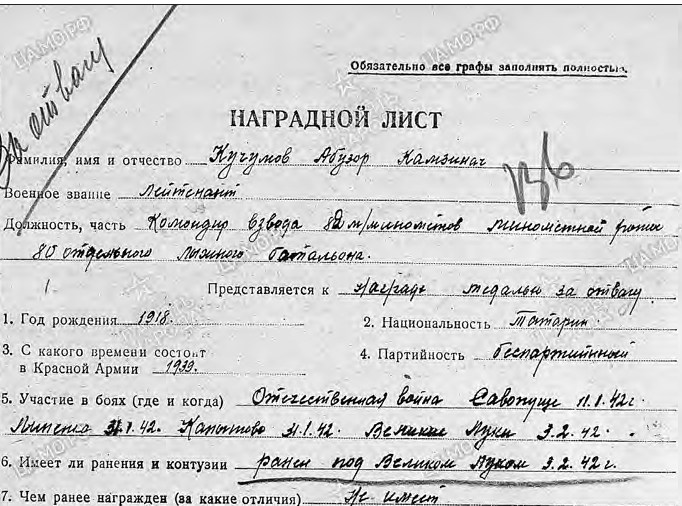 ЦАМО.РФ
За отвагу
Обязательно все графы заполнять полностью.
НАГРАДНОЙ ЛИСТ
Фамилия, имя и отчество Кучумов Абузор
Военное звание Лейтенант
Должность, часть Командир взвода 82 м/минометов минометной роты
80 отдельного лыжного батальона.
Представляется к награде медалью за отвагу
1. Год рождения 1918.
2. Национальность Татарин
3. С какого времени состоит
в Красной Армии 1939.
4. Партийность беспартийный
5. Участие в боях (где и когда) Отечественная война 11.1.42г.
31.1.42. 31.1.42. Великие Луки 3.2.42.
6. Имеет ли ранения и контузии ранен под Великом Луком 3.2.42 г.
7. Чем ранее награжден (за какие отличия) Не имеет